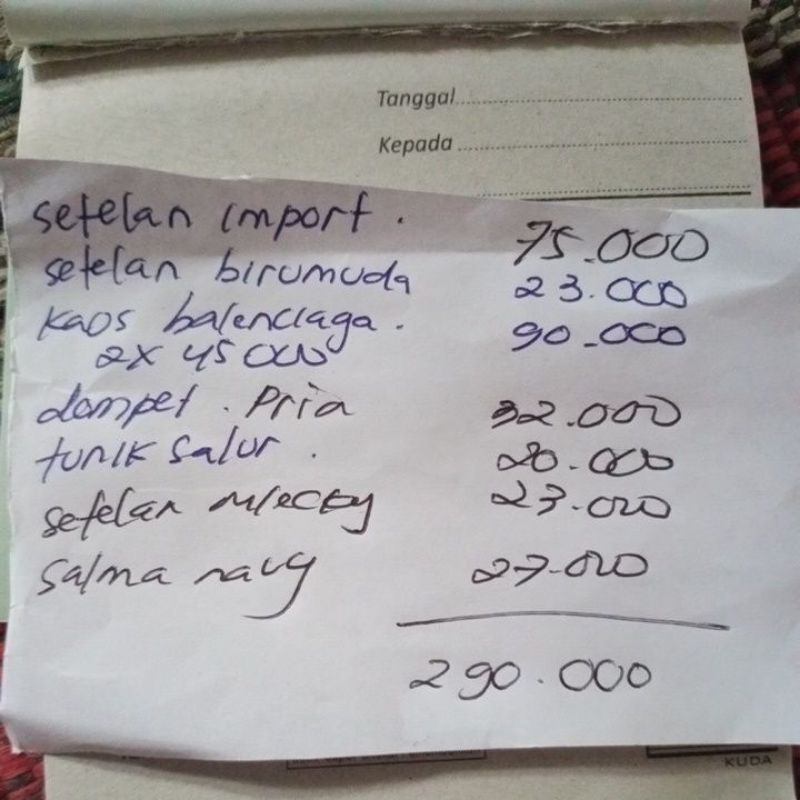 Tanggal
Kepada
setelan import. 75.000
setelan birumuda 23.000
kaos balenciaga. 90.000
2x 45 000
dompet. Pria 32.000
tunik salur. 20.000
setelan 23.000
salma navy 27.000
290.000
KUDA